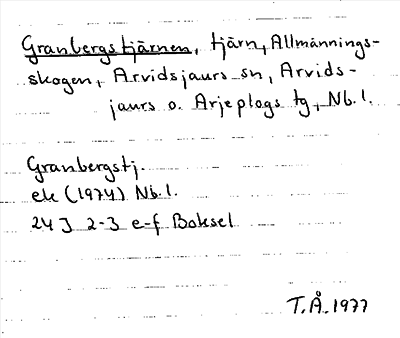 Granbergstjärnen, tjärn, Allmännings-
skogen, Arvidsjaurs sn, Arvids-
jaurs o. Arjeplogs tg, Nb. l.
Granbergstj.
ek (1974) Nb. l.
24 J 2-3 e-f Boksel
T.Å. 1977